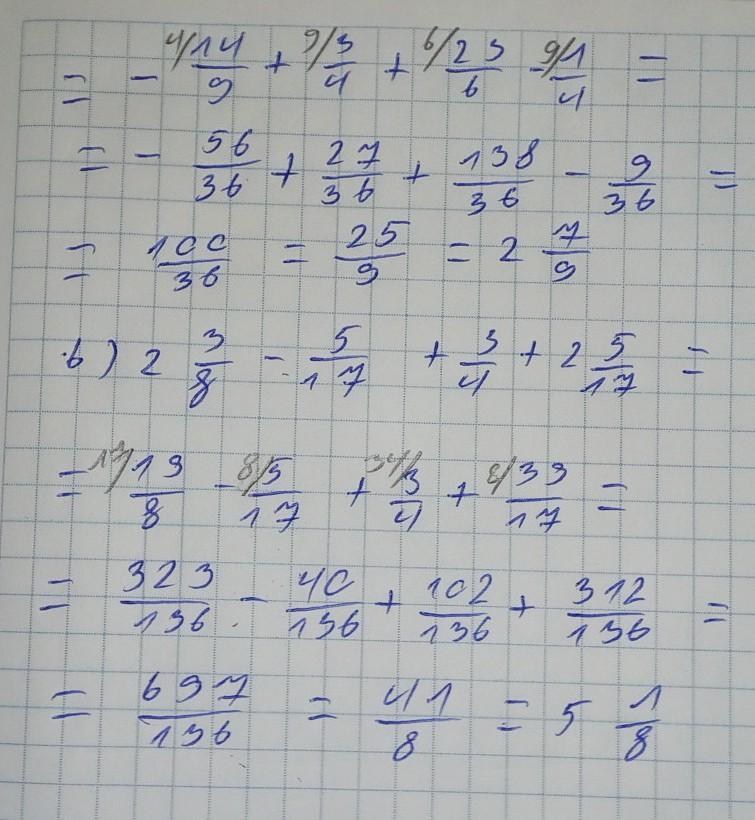 = - 4/14/9 + 9/3/4 + 6/23/6 - 9/1/4 =
= - 56/36 + 27/36 + 138/36 - 9/36 =
= 100/36 = 25/9 = 2 7/9
б) 2 3/8 - 5/17 + 3/4 + 2 5/17 =
= 17/19/8 - 8/5/17 + 34/3/4 + 8/39/17 =
= 323/136 - 40/136 + 102/136 + 312/136 =
= 697/136 = 41/8 = 5 1/8